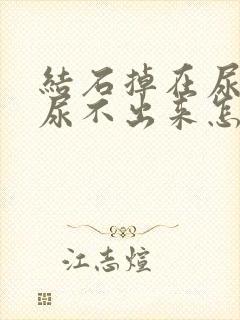 結石掉在尿
尿不出来怎
江志煊